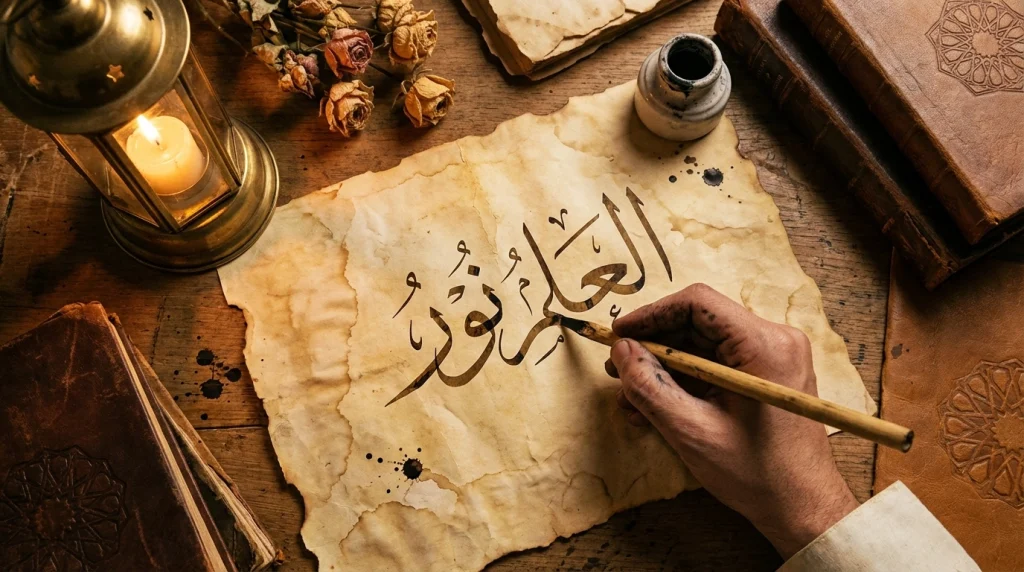 العلم نُورٌ